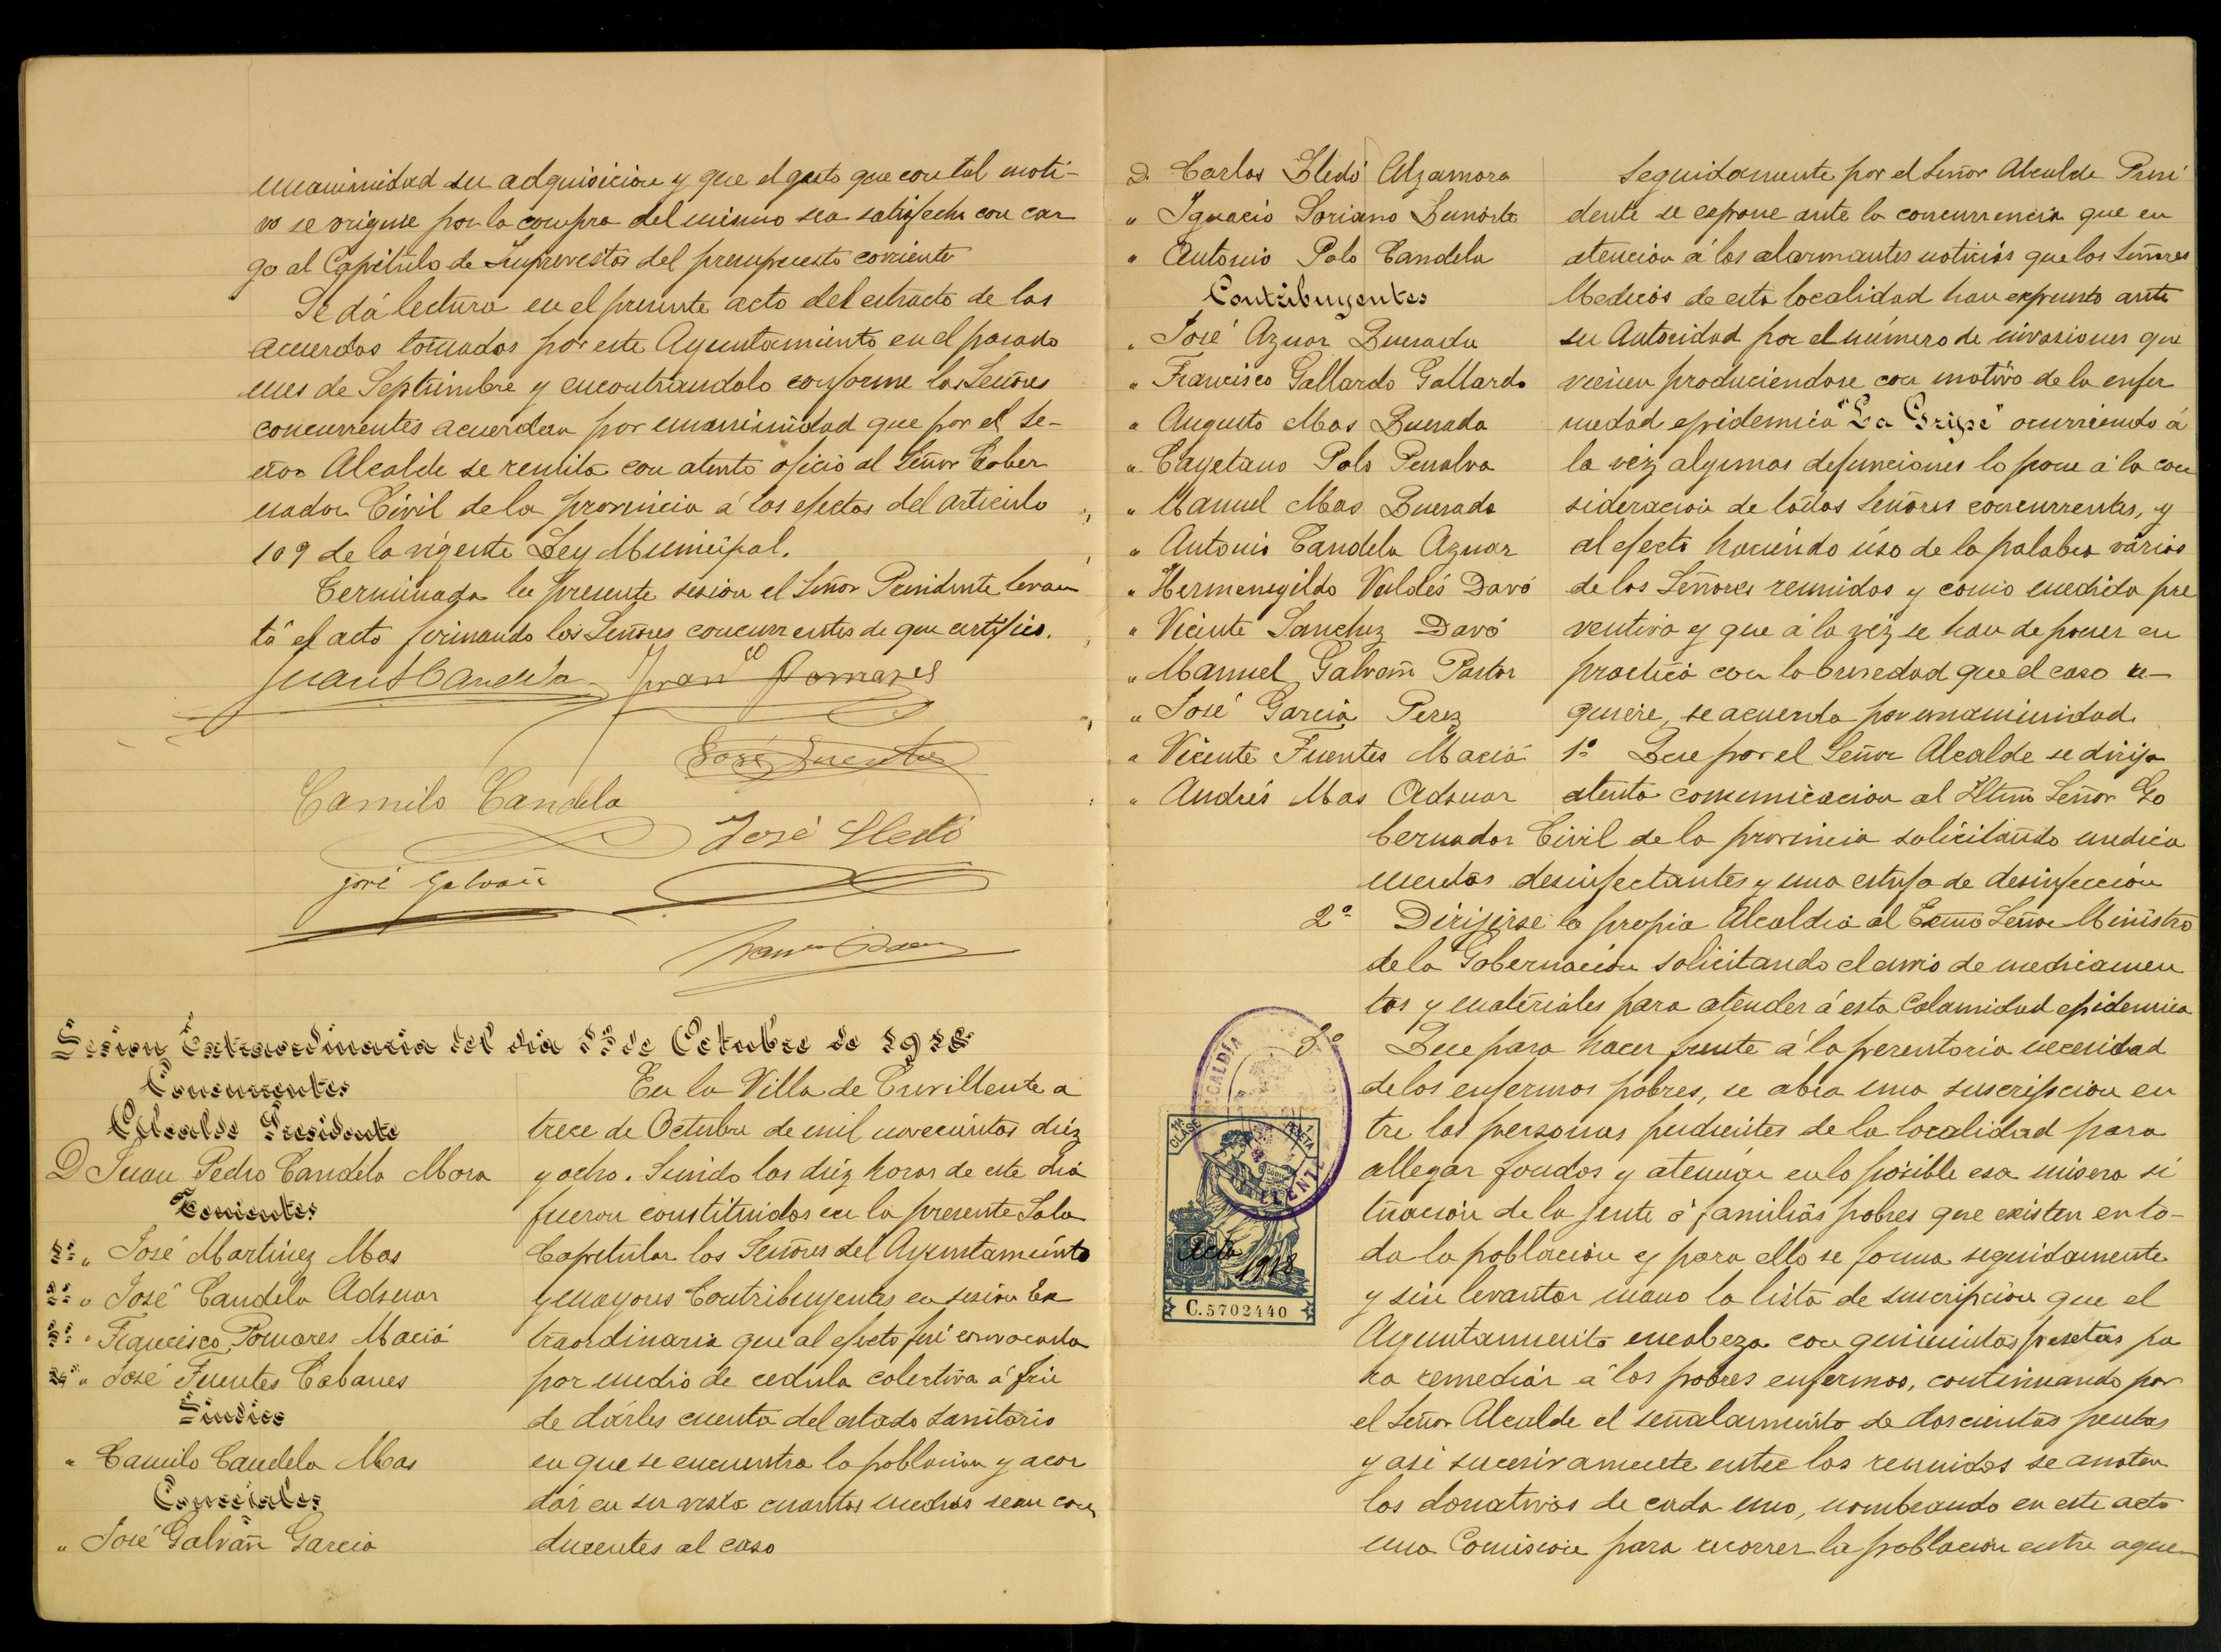 unanimidad su adquisicion y que el gasto que con tal moti-
vo se origine por la compra del mismo sea satisfecho con car
go al Capitulo de Imprevistos del presupuesto corriente
Se dá lectura en el presente acto del extracto de los
acuerdos tomados por este Ayuntamiento en el pasado
mes de Septiembre y encontrandolo conforme los Señores
concurrentes acuerdan por unanimidad que por el Se-
ñor Alcalde se remita con atento oficio al Señor Gober
nador Civil de la provincia á los efectos del articulo
109 de la vigente Ley Municipal.
Terminada la presente sesion el Señor Presidente levan
tó el acto firmando los Señores concurrentes de que certifico.
Juan P Candela Fran co Pomares
José Fuentes
Camilo Candela
José Lledó
José Galvañ
Sesion Extraordinaria del dia 13 de Octubre de 1918
Concurrentes
Alcalde Presidente
D Juan Pedro Candela Mora
Tenientes
1º " José Martinez Mas
2º " José Candela Adsuar
3º " Francisco Pomares Maciá
4º " José Fuentes Cabanes
Sindico
" Camilo Candela Mas
Concejales
" José Galvañ Garcia
En la Villa de Crevillente a
trece de Octubre de mil novecientos diez
y ocho. Siendo las diez horas de este dia
fueron constituidos en la presente Sala
Capitular los Señores del Ayuntamiento
y mayores Contribuyentes en sesion Ex
traordinaria que al efecto fué convocada
por medio de cedula colectiva á fin
de darles cuenta del estado sanitario
en que se encuentra la poblacion y acor
dar en su vista cuantos medios sean con
ducentes al caso
D. Carlos Lledó Alzamora
" Ignacio Soriano
" Antonio Polo Candela
Contribuyentes
" José Aznar Quesada
" Francisco Gallardo Gallardo
" Augusto Mas Quesada
" Cayetano Polo Penalva
" Manuel Mas Quesada
" Antonio Candela Aznar
" Hermenegildo Valdés Davó
" Vicente Sanchez Davó
" Manuel Galvañ Pastor
" José Garcia Perez
" Vicente Fuentes Maciá
" Andrés Mas Adsuar
Seguidamente por el Señor Alcalde Presi
dente se expone ante la concurrencia que en
atencion á las alarmantes noticias que los Señores
Medicos de esta localidad han expuesto ante
su Autoridad por el número de invasiones que
vienen produciendose con motivo de la enfer
medad epidemica "La Gripe" ocurriendo á
la vez algunas defunciones lo pone á la con
sideracion de todos Señores concurrentes, y
al efecto haciendo uso de la palabra varios
de los Señores reunidos y como medida pre
ventiva y que á la vez se han de poner en
practica con la brevedad que el caso re-
quiere, se acuerda por unanimidad.
1º Que por el Señor Alcalde se dirija
atenta comunicacion al Iltmo Señor Go
bernador Civil de la provincia solicitando medica
mentos desinfectantes y una estufa de desinfección
2º Dirijirse la propia Alcaldia al Exmo Señor Ministro
de la Gobernacion solicitando el envio de medicamen
tos y materiales para atender á esta Calamidad epidemica
3º Que para hacer frente á la perentoria necesidad
de los enfermos pobres, se abra una suscripcion en
tre las personas pudientes de la localidad para
allegar fondos y atenuar en lo posible esa misera si
tuacion de la jente ó familias pobres que existen en to-
da la poblacion y para ello se forma seguidamente
y sin levantar mano la lista de suscripcion que el
Ayuntamiento encabeza con quinientas pesetas pa
ra remediar á los pobres enfermos, continuando por
el Señor Alcalde el señalamiento de doscientas pesetas
y asi sucesivamente entre los reunidos se anotan
los donativos de cada uno, nombrando en este acto
una Comision para recorrer la poblacion entre aque
ALCALDÍA
1ª CLASE
1 PESETA
Acta
1918
C.5702440